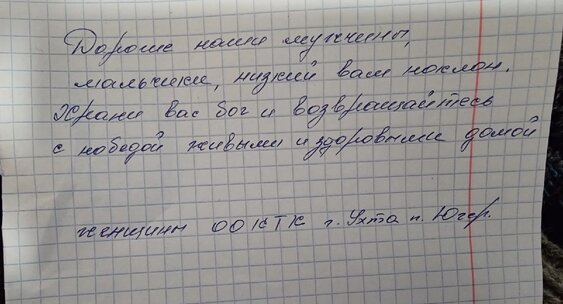 Дорогие наши мужчины,
мальчики, низкий вам поклон.
Храни вас бог и возвращайтесь
с победой живыми и здоровыми домой
женщины ООКТК г. Ухта п. Югер.